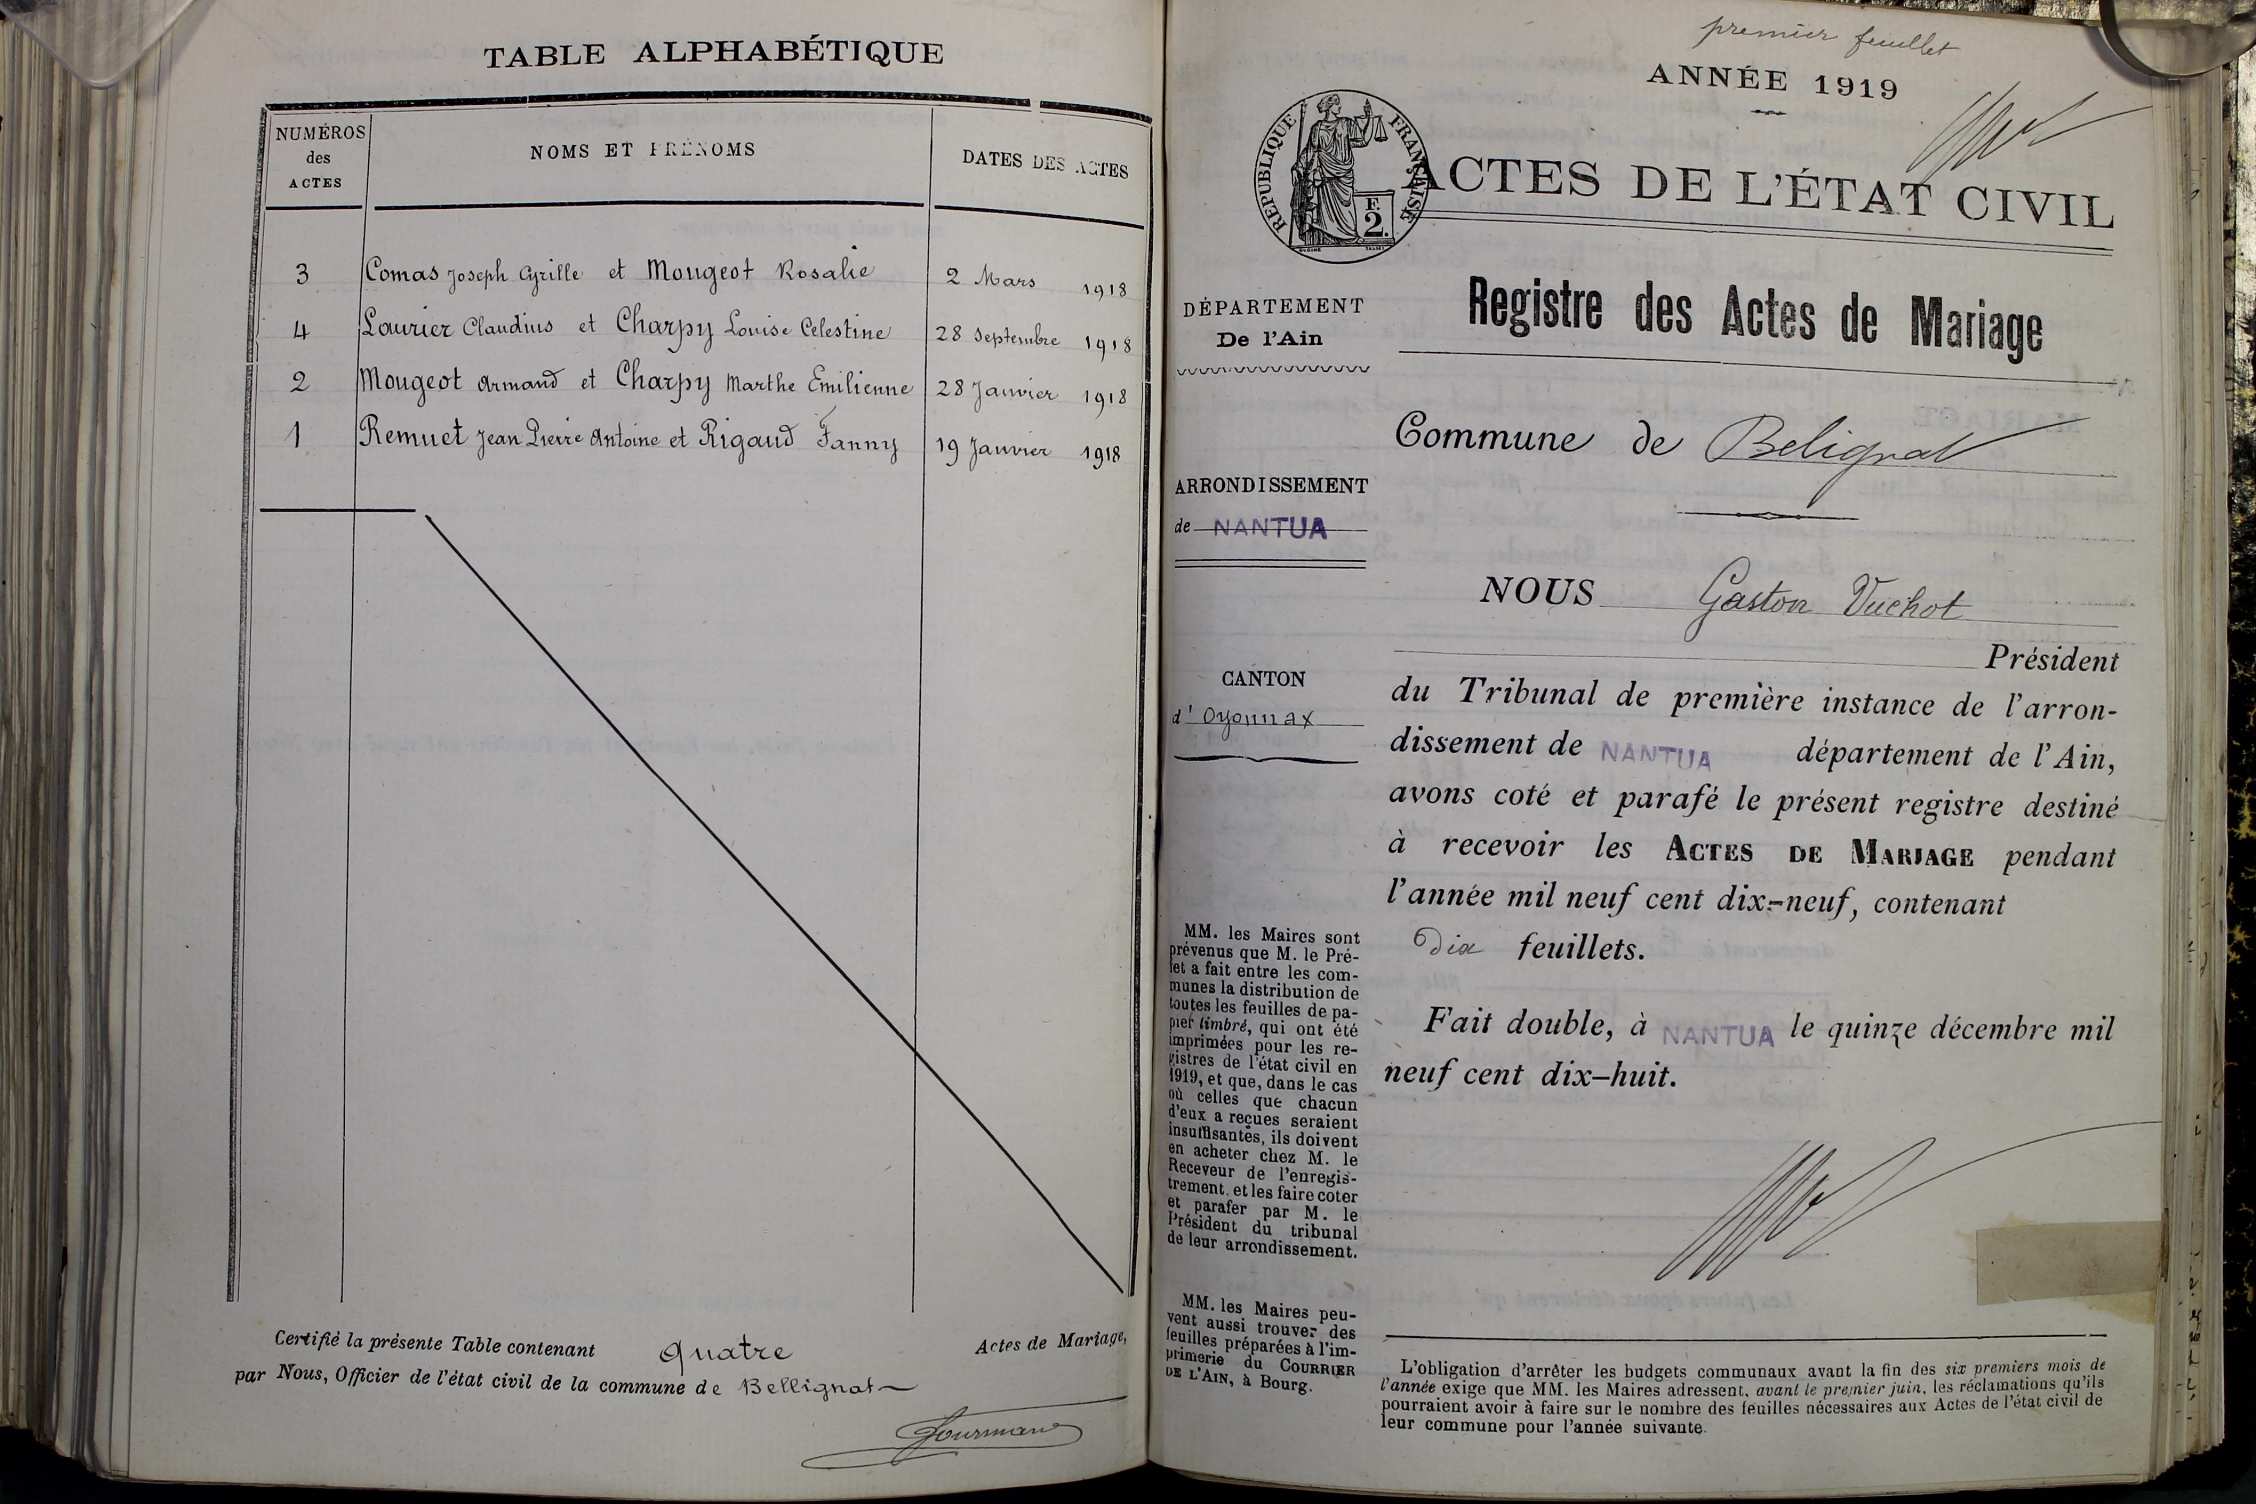 TABLE ALPHABÉTIQUE
NUMÉROS
des
ACTES
NOMS ET PRÉNOMS
DATES DES ACTES
3 Comas Joseph Cyrille et Mougeot Rosalie 2 Mars 1918
4 Laurier Claudius et Charpy Louise Celestine 28 Septembre 1918
2 Mougeot Armand et Charpy Marthe Emilienne 28 Janvier 1918
1 Remuet Jean Pierre Antoine et Rigaud Fanny 19 Janvier 1918
Certifié la présente Table contenant quatre Actes de Mariage,
par Nous, Officier de l'état civil de la commune de Bellignat
premier feuillet
ANNÉE 1919
RÉPUBLIQUE FRANÇAISE
F.
2.
ACTES DE L'ÉTAT CIVIL
Registre des Actes de Mariage
DÉPARTEMENT
De l'Ain
Commune de Belignat
ARRONDISSEMENT
de NANTUA
NOUS Gaston Vuchot
Président
CANTON
d'Oyonnax
du Tribunal de première instance de l'arron-
dissement de NANTUA département de l'Ain,
avons coté et parafé le présent registre destiné
à recevoir les ACTES DE MARIAGE pendant
l'année mil neuf cent dix-neuf, contenant
Dix feuillets.
Fait double, à NANTUA le quinze décembre mil
neuf cent dix-huit.
MM. les Maires sont
prévenus que M. le Pré-
fet a fait entre les com-
munes la distribution de
toutes les feuilles de pa-
pier timbré, qui ont été
imprimées pour les re-
gistres de l'état civil en
1919, et que, dans le cas
où celles que chacun
d'eux a reçues seraient
insuffisantes, ils doivent
en acheter chez M. le
Receveur de l'enregis-
trement, et les faire coter
et parafer par M. le
Président du tribunal
de leur arrondissement.
MM. les Maires peu-
vent aussi trouver des
feuilles préparées à l'im-
primerie du COURRIER
DE L'AIN, à Bourg.
L'obligation d'arrêter les budgets communaux avant la fin des six premiers mois de
l'année exige que MM. les Maires adressent, avant le premier juin, les réclamations qu'ils
pourraient avoir à faire sur le nombre des feuilles nécessaires aux Actes de l'état civil de
leur commune pour l'année suivante.